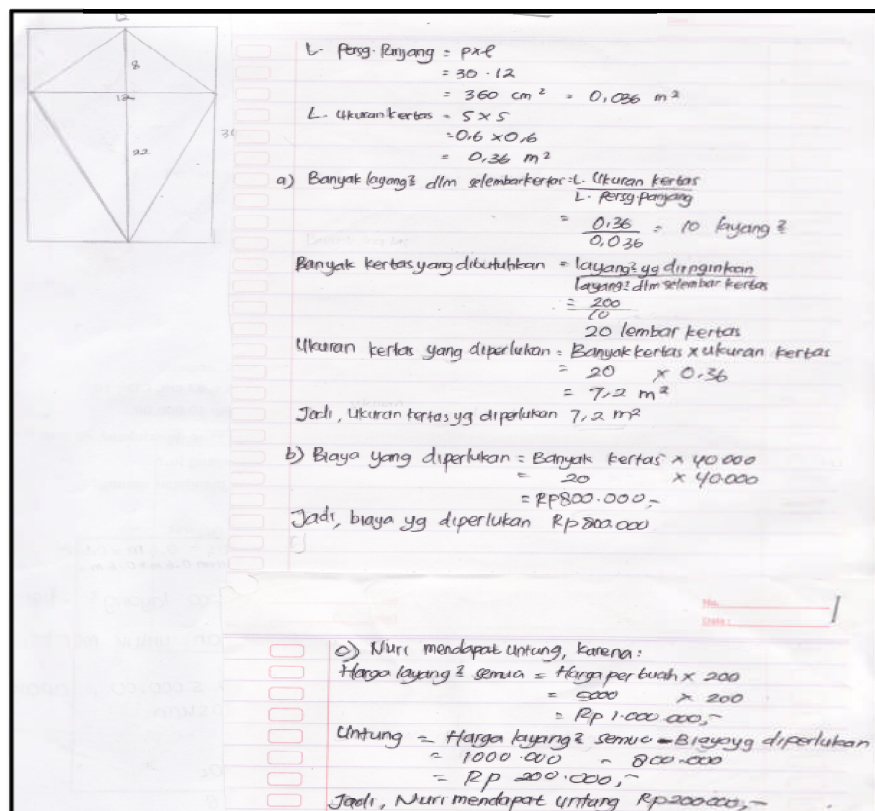 12
8
12
22
30
L. Persg. Panjang = p x l
= 30 . 12
= 360 cm² = 0,036 m²
L. Ukuran kertas = s x s
= 0,6 x 0,6
= 0,36 m²
a) Banyak layang² dlm selembar kertas = L. Ukuran kertas
L. Persg. panjang
= 0,36 = 10 layang²
0,036
Banyak kertas yang dibutuhkan = layang² yg diinginkan
layang² dlm selembar kertas
= 200
10
20 lembar kertas
Ukuran kertas yang diperlukan = Banyak kertas x ukuran kertas
= 20 x 0,36
= 7,2 m²
Jadi, Ukuran kertas yg diperlukan 7,2 m²
b) Biaya yang diperlukan = Banyak kertas x 40000
= 20 x 40.000
= RP800.000,-
Jadi, biaya yg diperlukan Rp 800.000
No.
Date :
c) Nuri mendapat untung, karena :
Harga layang² semua = Harga per buah x 200
= 5000 x 200
= Rp 1.000.000,-
Untung = Harga layang² semua - Biaya yg diperlukan
= 1000.000 - 800.000
= Rp 200.000,-
Jadi, Nuri mendapat untung Rp200.000,-